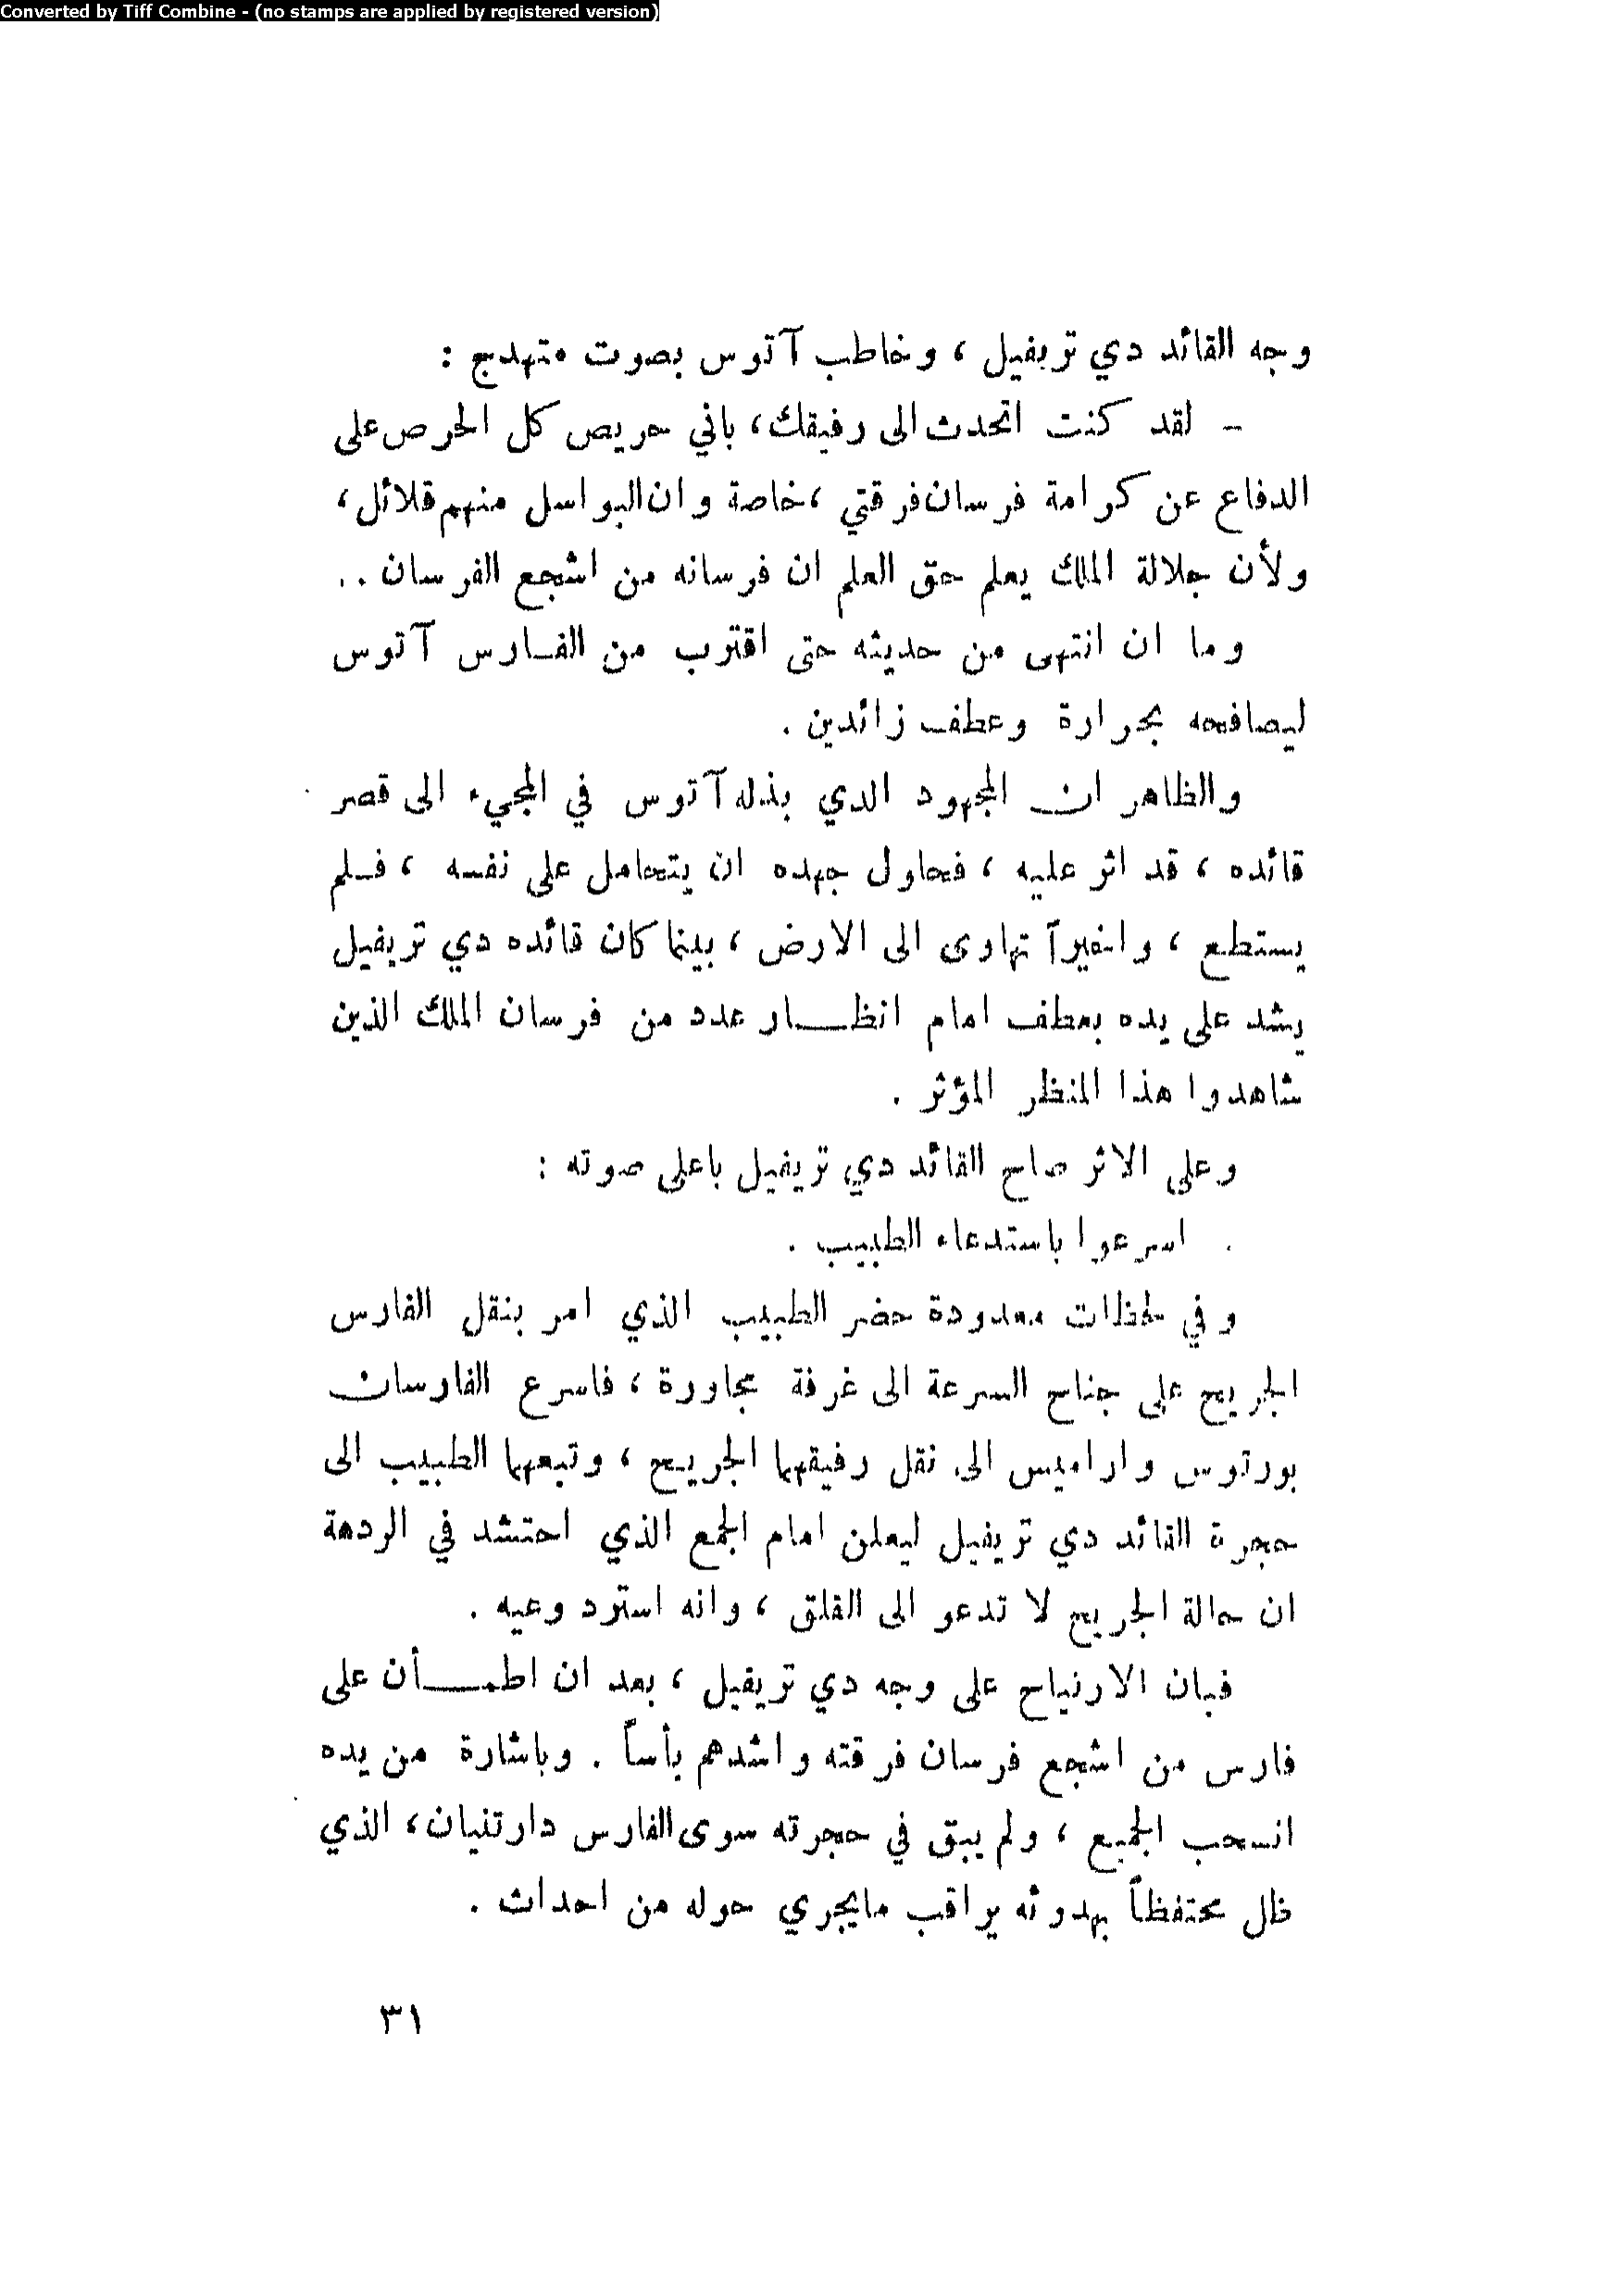 Converted by Tiff Combine - (no stamps are applied by registered version)
وجه القائد دي تريفيل ، وخاطب آتوس بصوت متهدج :
- لقد كنت اتحدث الى رفيقك، باني حريص كل الحرص على
الدفاع عن كرامة فرسان فرقتي ، خاصة وان البواسل منهم قلائل ،
ولأن جلالة الملك يعلم حق العلم ان فرسانه من اشجع الفرسان . .
وما ان انتهى من حديثه حتى اقترب من الفارس آتوس
ليصافحه بحرارة وعطف زائدين .
والظاهر ان المجهود الذي بذله آتوس في المجيء الى قصر
قائده ، قد اثر عليه ، فحاول جهده ان يتحامل على نفسه ، فلم
يستطع ، واخيراً تهاوى الى الارض ، بينما كان قائده دي تريفيل
يشد على يده بعطف امام انظار عدد من فرسان الملك الذين
شاهدوا هذا المنظر المؤثر .
وعلى الاثر صاح القائد دي تريفيل باعلى صوته :
. اسرعوا باستدعاء الطبيب .
وفي لحظات معدودة حضر الطبيب الذي امر بنقل الفارس
الجريح على جناح السرعة الى غرفة مجاورة ، فاسرع الفارسان
بورتوس واراميس الى نقل رفيقهما الجريح ، وتبعهما الطبيب الى
حجرة القائد دي تريفيل ليعلن امام الجمع الذي احتشد في الردهة
ان حالة الجريح لا تدعو الى القلق ، وانه استرد وعيه .
فبان الارتياح على وجه دي تريفيل ، بعد ان اطمأن على
فارس من اشجع فرسان فرقته واشدهم بأساً . وباشارة من يده
انسحب الجميع ، ولم يبق في حجرته سوى الفارس دارتنيان، الذي
ظل محتفظاً بهدوئه يراقب مايجري حوله من احداث .
٣١